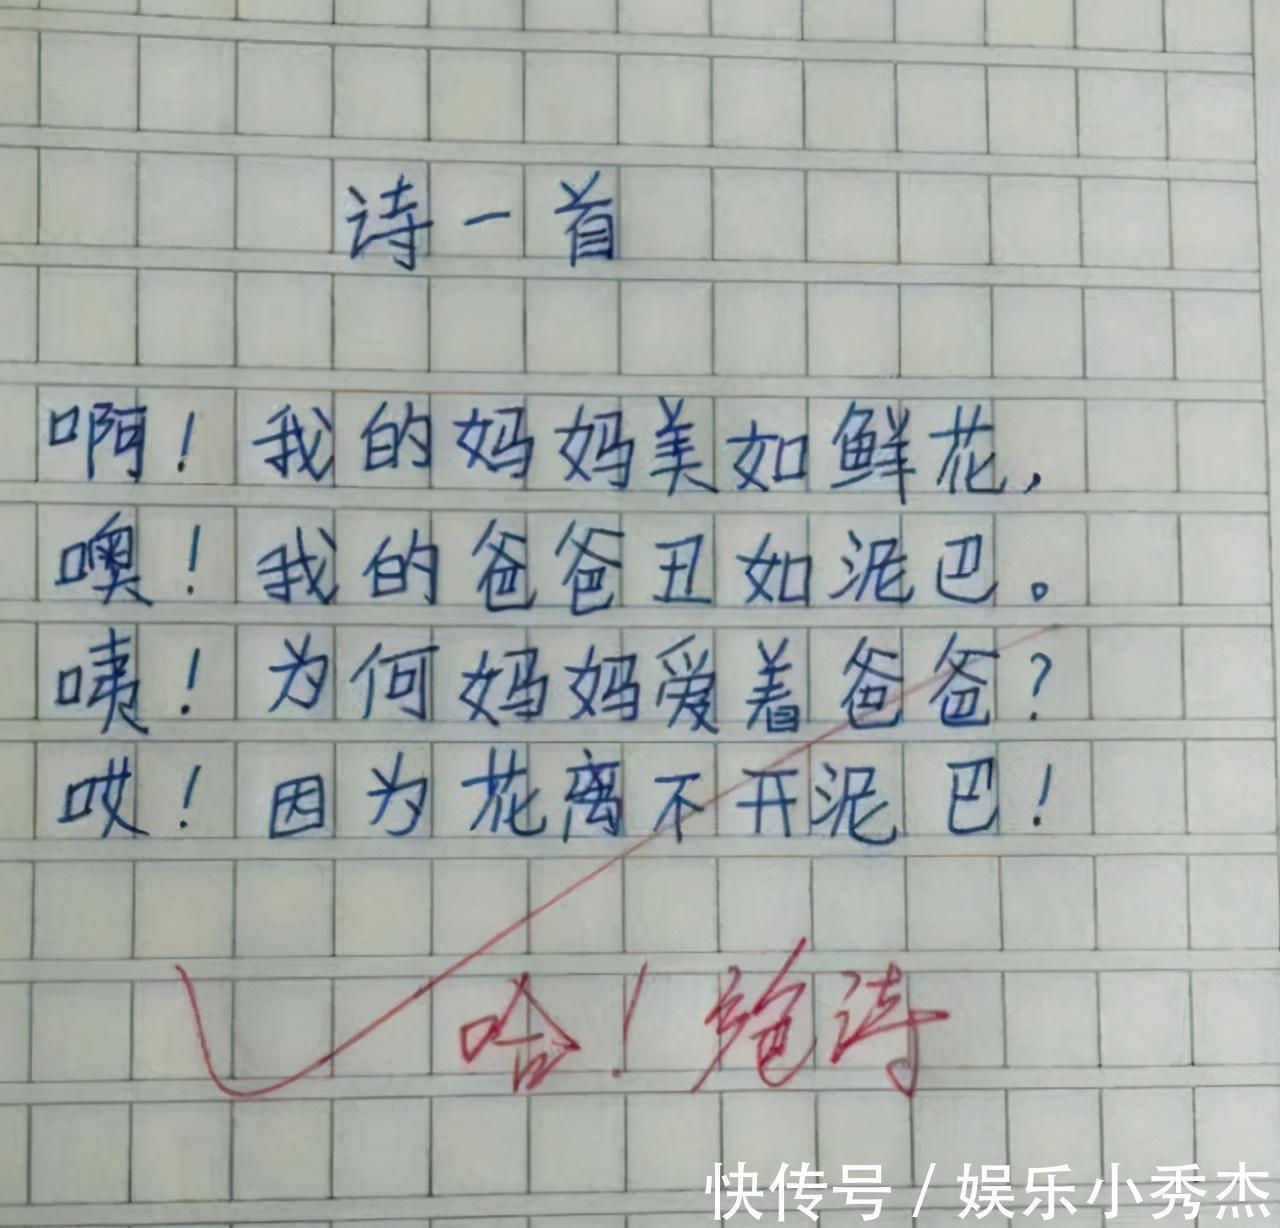 诗一首
啊！我的妈妈美如鲜花，
噢！我的爸爸丑如泥巴。
咦！为何妈妈爱着爸爸？
哎！因为花离不开泥巴！
哈！绝诗
快传号/娱乐小秀杰